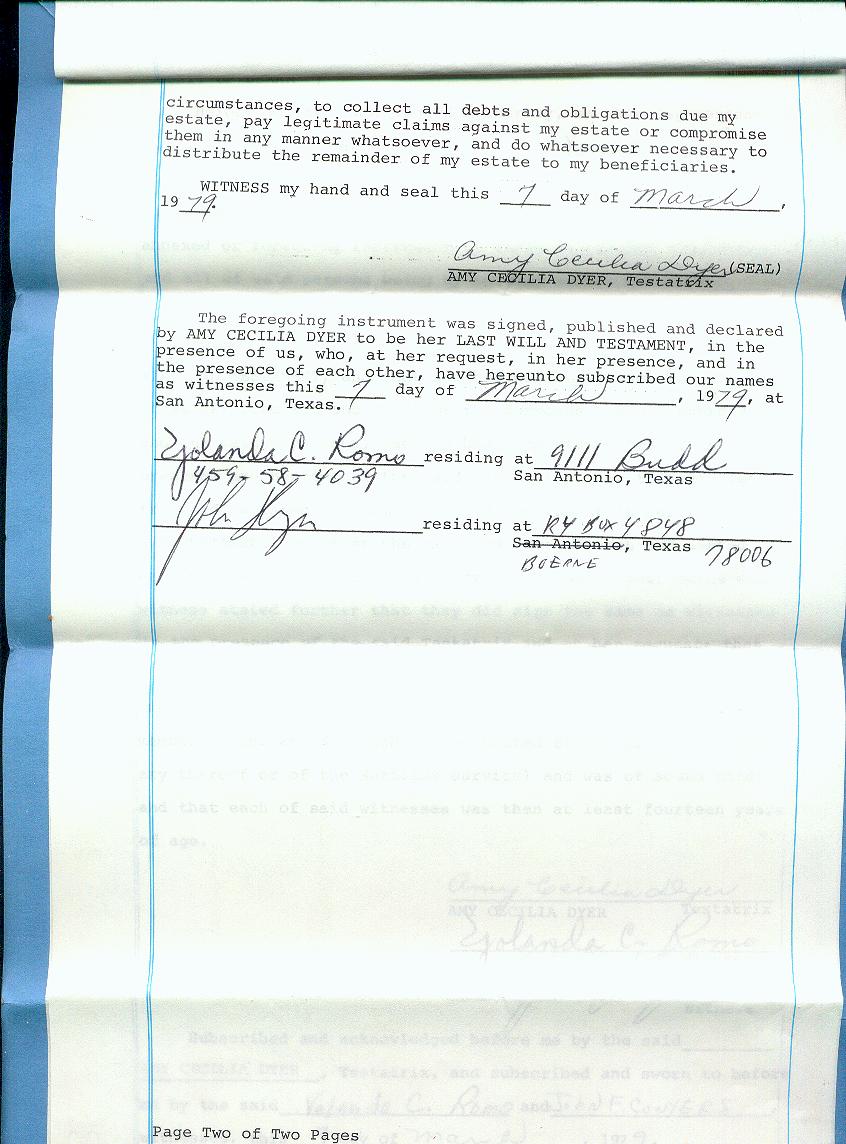 circumstances, to collect all debts and obligations due my
estate, pay legitimate claims against my estate or compromise
them in any manner whatsoever, and do whatsoever necessary to
distribute the remainder of my estate to my beneficiaries.
WITNESS my hand and seal this 7 day of March,
1979.
Amy Cecilia Dyer (SEAL)
AMY CECILIA DYER, Testatrix
The foregoing instrument was signed, published and declared
by AMY CECILIA DYER to be her LAST WILL AND TESTAMENT, in the
presence of us, who, at her request, in her presence, and in
the presence of each other, have hereunto subscribed our names
as witnesses this 7 day of March, 1979, at
San Antonio, Texas.
Yolanda C. Romo residing at 9111 Budd
459-58-4039 San Antonio, Texas
residing at R4 Box 4848
San Antonio, Texas 78006
BOERNE
and that each of said witnesses was then at least fourteen years
of age.
Amy Cecilia Dyer
AMY CECILIA DYER Testatrix
Yolanda C. Romo
Witness
Subscribed and acknowledged before me by the said
AMY CECILIA DYER, Testatrix, and subscribed and sworn to before
me by the said Yolanda C. Romo and
March 1979
Page Two of Two Pages